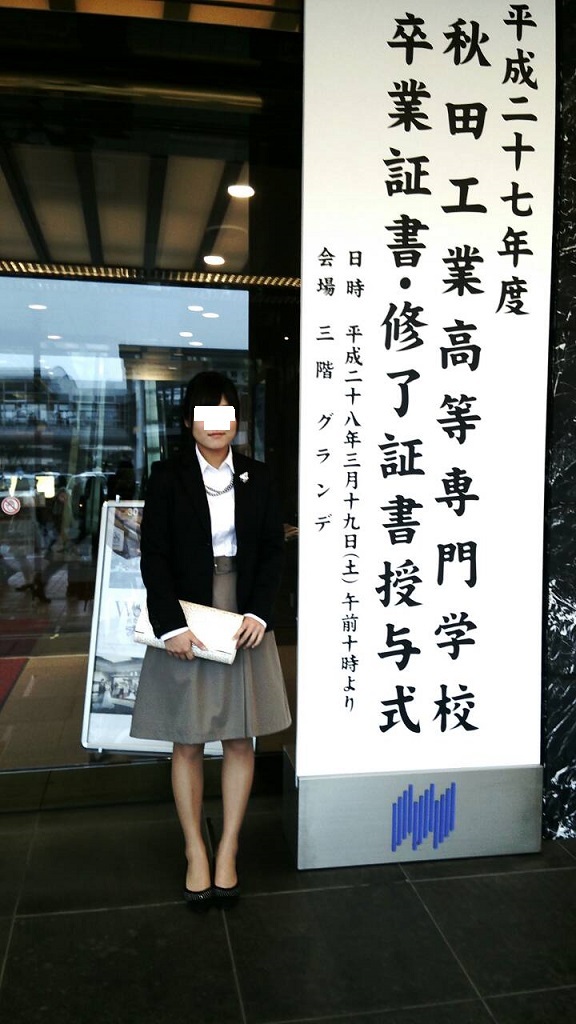 平成二十七年度
秋田工業高等専門学校
卒業証書・修了証書授与式
日時 平成二十八年三月十九日(土)午前十時より
会場 三階 グランデ